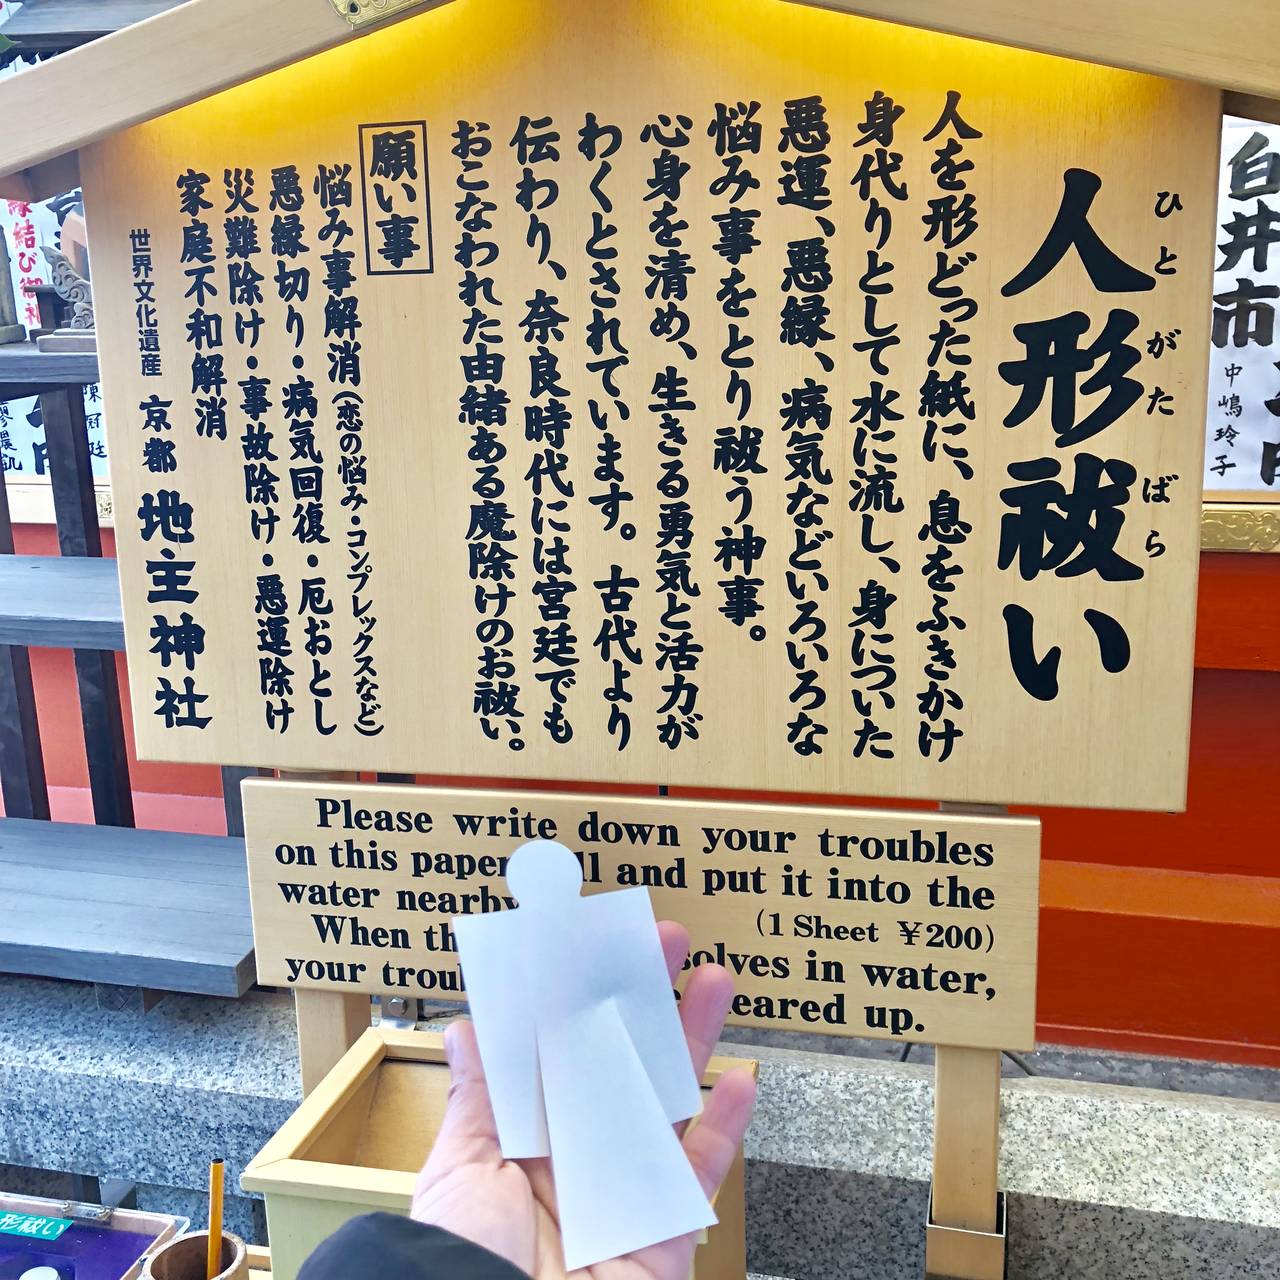 人形祓い
ひとがたばら
人を形どった紙に、息をふきかけ
身代りとして水に流し、身についた
悪運、悪縁、病気などいろいろな
悩み事をとり祓う神事。
心身を清め、生きる勇気と活力が
わくとされています。古代より
伝わり、奈良時代には宮廷でも
おこなわれた由緒ある魔除けのお祓い。
願い事
悩み事解消(恋の悩み・コンプレックスなど)
悪縁切り・病気回復・厄おとし
災難除け・事故除け・悪運除け
家庭不和解消
世界文化遺産 京都 地主神社
Please write down your troubles
on this paper and put it into the
water nearby
(1 Sheet ¥200)
When in water,
your up.
白井市
中嶋玲子
結び御礼
形祓い